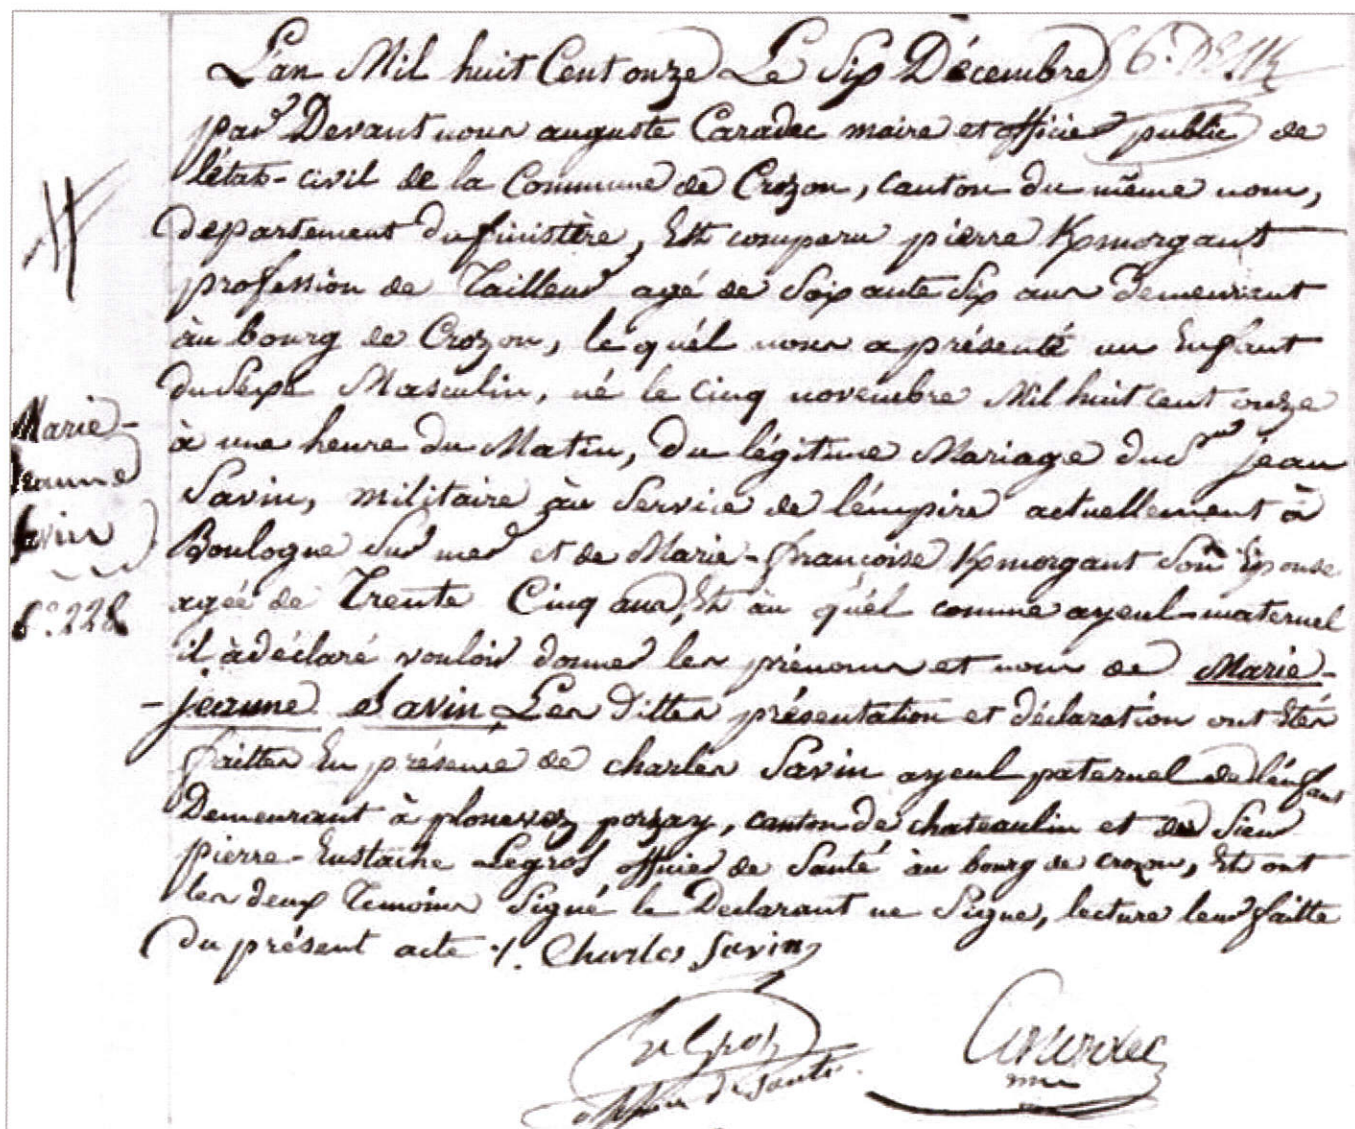 L'an Mil huit Cent onze Le Six Décembre
par Devant nous auguste Caradec maire et officier public de
l'état-civil de la Commune de Crozon, canton du même nom,
departement du finistère, Est comparu pierre Kmorgant
profession de Tailleur agé de Soixante Six ans Demeurant
àu bourg de Crozon, le quél nous a présenté un Enfant
du Sexe Masculin, né le cinq novembre Mil huit cent onze
à une heure du Matin, Du légitime Mariage du Sr jean
Savin, militaire àu Service de l'émpire actuellement à
Boulogne Sur mer et de Marie-françoise Kmorgant Son Epouse
agée de Trente Cinq ans, Et àu quél comme ayeul-maternel
il à déclaré vouloir donner les prénoms et nom de Marie-
-jeanne Savin, Les Dittes présentation et déclaration ont Etés
faittes En présence de charles Savin ayeul paternel de l'énfant
Demeurant à plonevez porzay, canton de chateaulin et du Sieur
pierre-Eustache Legros officier de Santé àu bourg de crozon, Et ont
les deux Temoins Signé le Declarant ne Signe, lecture leur faitte
Du présent acte ./. Charles Savin
Marie-
Jeanne
Savin
228
Le Gros
officier de santé
Caradec